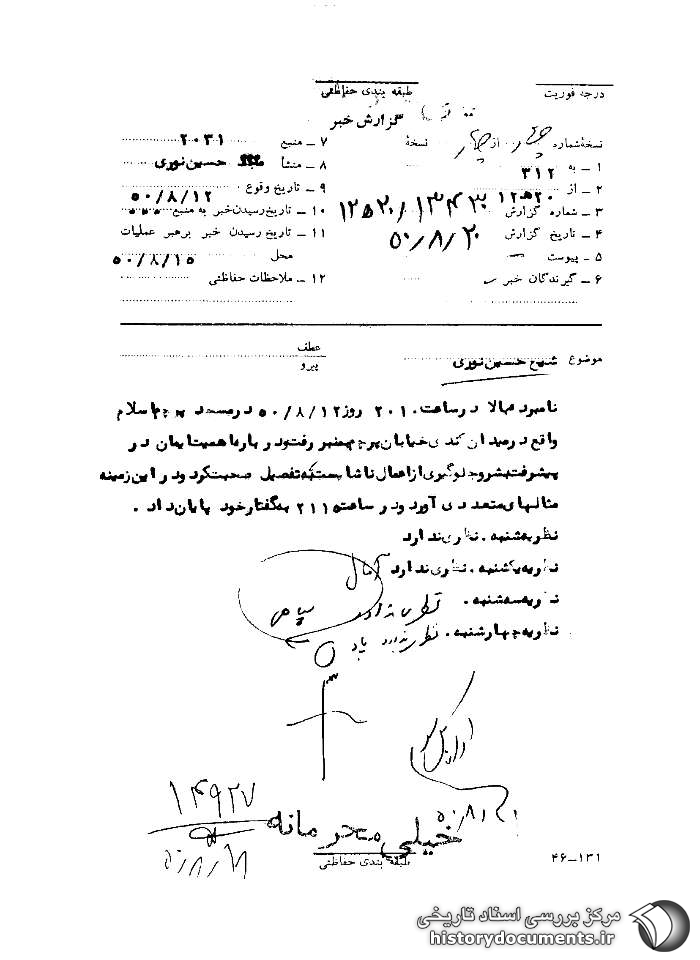 درجه فوریت
طبقه بندی حفاظتی
گزارش خبر
نسخهٔ شماره چهار از چهار نسخهٔ
۱ – به ۳۱۲
۲ – از ۲۰ه۱۲
۳ – شماره گزارش
۴ – تاریخ گزارش ۵۰/۸/۲۰
۵ – پیوست –
۶ – گیرندگان خبر –
۷ – منبع ۲۰۳۱
۸ – منشأ حسین نوری
۹ – تاریخ وقوع ۵۰/۸/۱۲
۱۰ – تاریخ رسیدن خبر به منبع
۱۱ – تاریخ رسیدن خبر برهبر عملیات
محل ۵۰/۸/۱۵
۱۲ – ملاحظات حفاظتی
موضوع شیخ حسین نوری
عطف
پیرو
نامبرده بالا در ساعت ۲۰۱۰ روز ۵۰/۸/۱۲ در مسجد پرچم اسلام
واقع در میدان کندی خیابان پرچم بمنبر رفت و درباره اهمیت ایمان در
پیشرفت بشر و جلوگیری از اعمال ناشایست بتفصیل صحبت کرد و در این زمینه
مثالهای متعددی آورد و در ساعت ۲۱۱۵ بگفتار خود پایان داد .
نظریه شنبه . نظری ندارد
نظریه یکشنبه . نظری ندارد آمال
نظریه سه شنبه . نظری ندارد
نظریه چهارشنبه . نظری ندارد
۱۴۹۲۷
خیلی محرمانه
طبقه بندی حفاظتی
۴۶–۱۳۱
مرکز بررسی اسناد تاریخی
historydocuments.ir